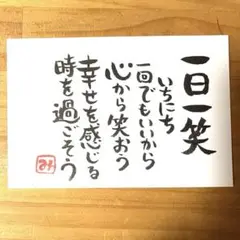 一日一笑
いちにち
一回でもいいから
心から笑おう
幸せを感じる
時を過ごそう
み